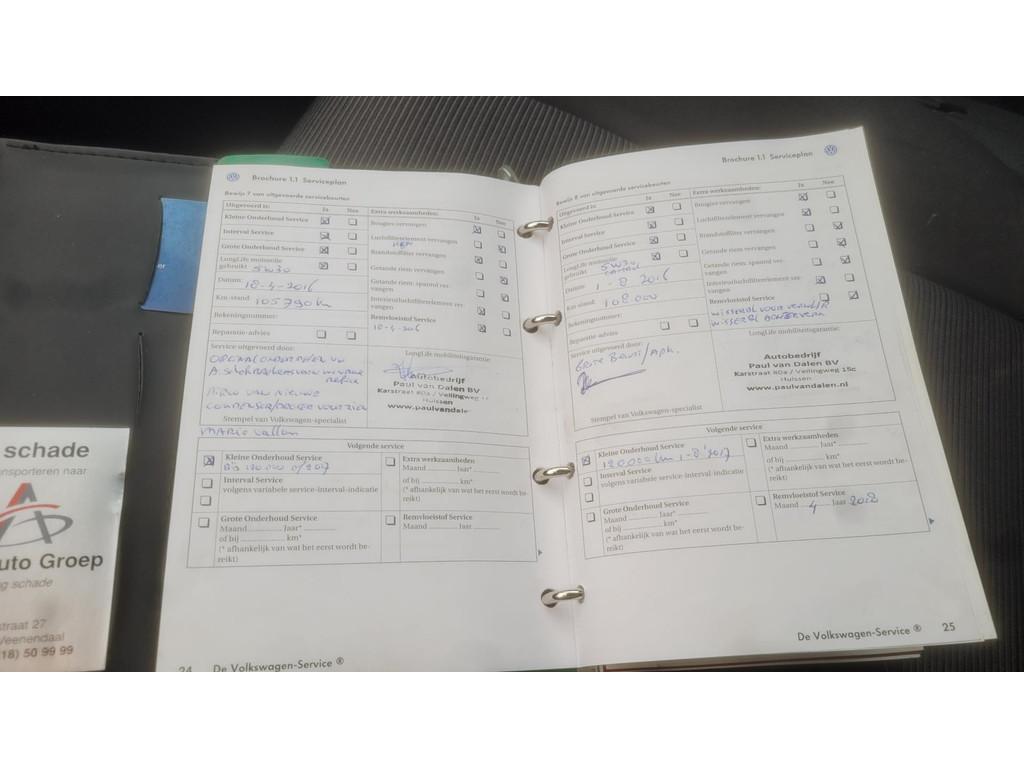 Brochure 1.1 Serviceplan
Bewijs 7 van uitgevoerde servicebeurten
Uitgevoerd is:
Ja
Nee
Extra werkzaamheden:
Ja
Nee
Kleine Onderhoud Service
Bougies vervangen
Interval Service
Luchtfilterelement vervangen
Grote Onderhoud Service
Brandstoffilter vervangen
LongLife motorolie
gebruikt 5W30
Getande riem vervangen
Datum: 18-4-2016
Getande riem: spanrol ver-
vangen
Km-stand: 105790km
Interieurluchtfilterelement ver-
vangen
Bekeningnummer:
Remvloeistof Service
18-4-2016
Reparatie-advies
Service uitgevoerd door:
LongLife mobiliteitsgarantie:
Autobedrijf
Paul van Dalen BV
Karstraat 80a / Veilingweg
Huissen
www.paulvandale
Stempel van Volkswagen-specialist
Volgende service
Kleine Onderhoud Service
Bis 120.000 0/2017
Interval Service
volgens variabele service-interval-indicatie
Extra werkzaamheden
Maand ............ Jaar* ............
of bij ............ km*
(* afhankelijk van wat het eerst wordt be-
reikt)
Grote Onderhoud Service
Maand ............ Jaar* ............
of bij ............ km*
(* afhankelijk van wat het eerst wordt be-
reikt)
Remvloeistof Service
Maand ............ Jaar ............
24
De Volkswagen-Service ®
Brochure 1.1 Serviceplan
Bewijs 8 van uitgevoerde servicebeurten
Uitgevoerd is:
Ja
Nee
Extra werkzaamheden:
Ja
Nee
Kleine Onderhoud Service
Bougies vervangen
Interval Service
Luchtfilterelement vervangen
Grote Onderhoud Service
Brandstoffilter vervangen
LongLife motorolie
gebruikt 5W30
Getande riem vervangen
Datum: 1-8-2016
Getande riem: spanrol ver-
vangen
Km-stand: 108.000
Interieurluchtfilterelement ver-
vangen
Bekeningnummer:
Remvloeistof Service
Reparatie-advies
Service uitgevoerd door:
Grote Beurt/Apk.
LongLife mobiliteitsgarantie:
Autobedrijf
Paul van Dalen BV
Karstraat 80a / Veilingweg 15c
Huissen
www.paulvandalen.nl
Stempel van Volkswagen-specialist
Volgende service
Kleine Onderhoud Service
120.000km 1-8-2017
Interval Service
volgens variabele service-interval-indicatie
Extra werkzaamheden
Maand ............ Jaar* ............
of bij ............ km*
(* afhankelijk van wat het eerst wordt be-
reikt)
Grote Onderhoud Service
Maand ............ Jaar* ............
of bij ............ km*
(* afhankelijk van wat het eerst wordt be-
reikt)
Remvloeistof Service
Maand 4 Jaar 2018
De Volkswagen-Service ®
25
schade
nsporteren naar
uto Groep
g schade
straat 27
Veenendaal
18) 50 99 99